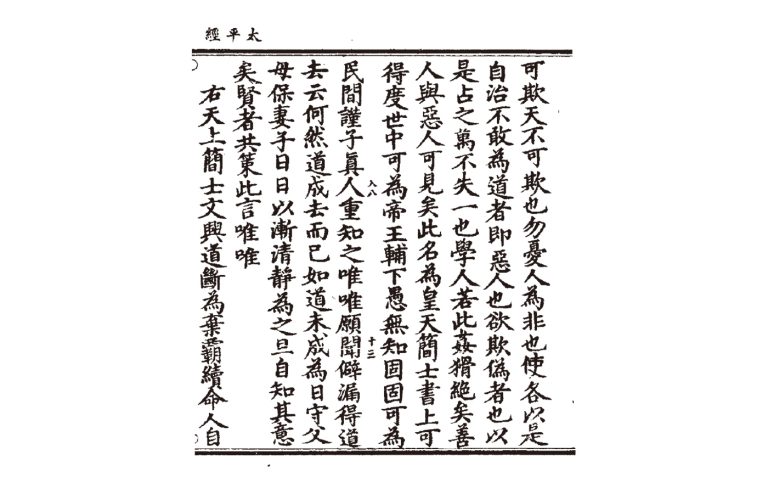 太平經
可欺天不可欺也勿憂人為非也使各以是
自治不敢為道者即惡人也欲欺偽者也以
是占之萬不失一也學人若此姦猾絕矣善
人與惡人可見矣此名為皇天簡士書上可
得度世中可為帝王輔下愚無知固固可為
入八 十三
民間謹子眞人重知之唯唯願聞僻漏得道
去云何然道成去而已如道未成為日守父
母保妻子日日以漸清靜為之旦自知其意
矣賢者共策此言唯唯
右天上簡士文興道斷為棄霸續命人自